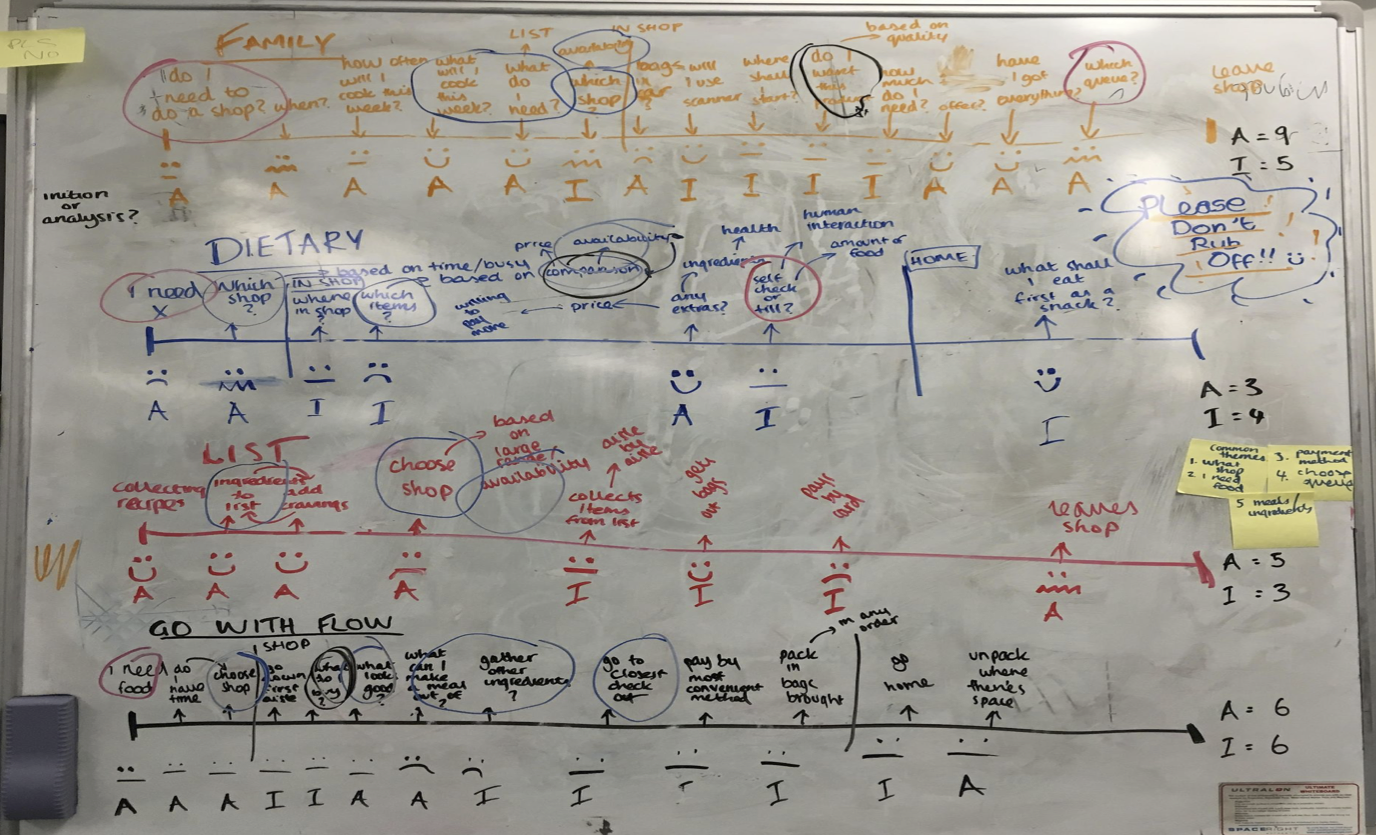 PLS
NO
FAMILY
do I
need to
do a shop?
when?
how often
will I
cook this
week?
what
will I
cook
this
week?
LIST
what
do
I
need?
availability
which
shop?
IN SHOP
bags
in
car
?
will
I use
scanner
where
shall I
start?
do I
want
this
based on
quality
how
much
do I
need?
offer?
have
I got
everything?
which
queue?
leave
shop
A A A A A I A I I I I A A A
A = 9
I = 5
intition
or
analysis?
Please
Don't
Rub
Off!!
DIETARY
I need
X
Which
shop
?
IN SHOP
where
in shop?
which
items
?
based on time/busy
based on
price
availability
comparison
price
willing
to
pay
more
ingredients
any
extras?
health
human
interaction
amount of
food
self
check
or
till?
HOME
what shall
I eat
first as a
snack?
A A I I A I I
A = 3
I = 4
LIST
collecting
recipes
ingredients
to
list
add
cravings
choose
shop
based
on
large
range
availability
aisle
by
aisle
collects
items
from list
gets
bags
out
pays
by
card
leaves
shop
A A A A I I I A
A = 5
I = 3
common
themes
1. what
shop
2. I need
food
3. payment
method
4. choose
queue
5 meals/
ingredients
GO WITH FLOW
I need
food
do
I have
time
choose
shop
SHOP
go
down
first
aisle
what
do
I
buy
?
what
looks
good
?
what
can I
make
a meal
out of
?
gather
other
ingredients
?
go to
closest
check
out
pay by
most
convenient
method
pack
in
bags
brought
in any
order
go
home
unpack
where
there's
space
A A A I I A A I I I I I A
A = 6
I = 6
ULTRALON
ULTIMATE
WHITEBOARD
SPACERIGHT